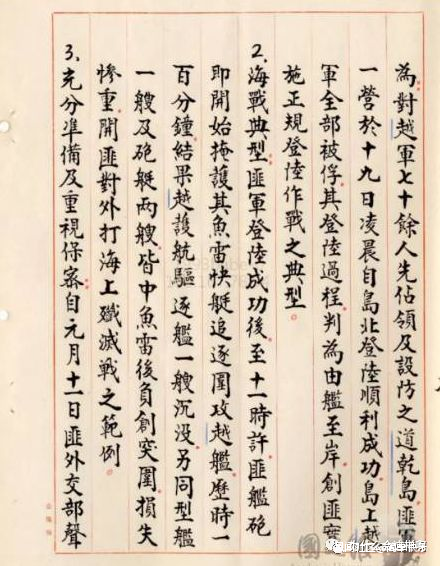 為對越軍七十餘人先佔領及設防之道乾島。匪軍
一營於十九日凌晨自島北登陸順利成功。島上越
軍全部被俘。其登陸過程。判為由艦至岸創匪實
施正規登陸作戰之典型。
2.海戰典型。匪軍登陸成功後。至十一時許匪艦砲
即開始掩護其魚雷快艇追逐圍攻越艦。歷時一
百分鐘。結果越護航驅逐艦一艘沉没。另同型艦
一艘及砲艇兩艘。皆中魚雷後負創突圍。損失
慘重。開匪對外打海上殲滅戰之範例。
3.充分準備及重視保密。自元月十一日匪外交部聲
國